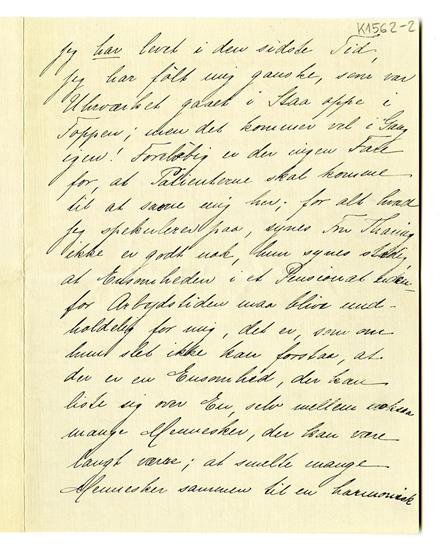 K1562-2
jeg har levet i den sidste Tid,
jeg har følt mig ganske, som var
Uhrværket gaaet i Staa oppe i
Toppen; men det kommer vel i Gang
igen! Foreløbig er der ingen Fare
for, at Patienterne skal komme
til at savne mig her; for alt hvad
jeg spekulerer paa, synes Frk Thaning
ikke er godt nok, hun synes
at Ensomheden i et Pensionat uden-
for Arbejdstiden maa blive uud-
holdelig for mig, det er, som om
hun slet ikke kan forstaa, at
der er en Ensomhed, der kan
liste sig over En, selv mellem
mange Mennesker, der kan være
langt værre; at smelte mange
Mennesker sammen til en harmonisk